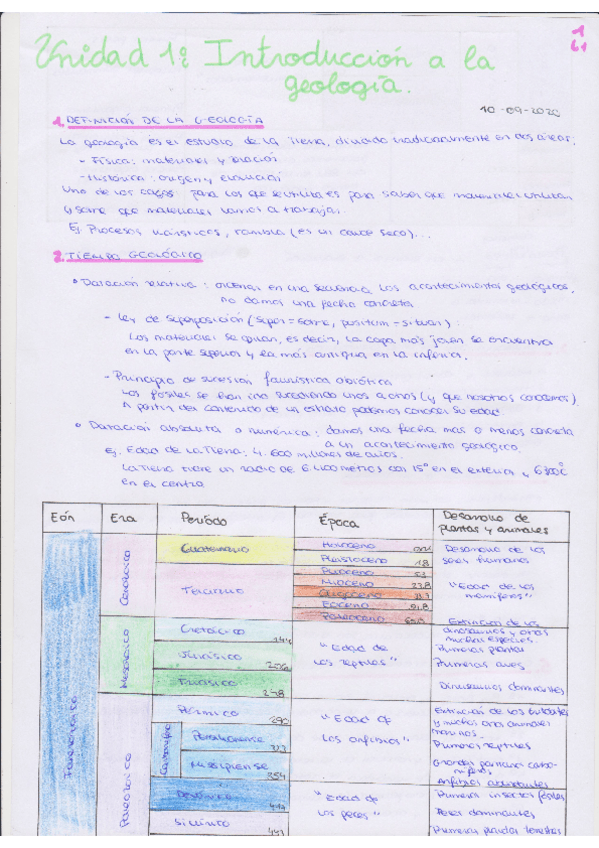 Unidad 1: Introducción a la
geología.
1
10-09-2020
1. DEFINICIÓN DE LA GEOLOGÍA
La geología es el estudio de la Tierra, dividido tradicionalmente en dos áreas:
- Física: materiales y
- Histórica: origen y evolución
Uno de los para los que se utiliza es para saber que materiales utilizan
y sobre que materiales vamos a trabajar.
Ej. Procesos kársticos, rambla (es un cauce seco)...
2. TIEMPO GEOLÓGICO
• Datación relativa: ordenar en una secuencia los acontecimientos geológicos,
no damos una fecha concreta
- Ley de superposición (super = sobre, positum = situar):
Los materiales se apilan, es decir, la capa más joven se encuentra
en la parte superior y la más antigua en la inferior.
- Principio de sucesión faunística o biótica
Los fósiles se han ido sucediendo unos a otros (y que nosotros conocemos)
A partir del contenido de un estrato podemos conocer su edad
• Datación absoluta o numérica: damos una fecha mas o menos concreta
a un acontecimiento geológico.
Ej. Edad de La Tierra: 4.600 millones de años.
La Tierra tiene un radio de 6.400 metros con 15° en el exterior y
en el centro
Eón Era Período Época Desarrollo de
plantas y animales
Fanerozoico
Cenozoico
Cuaternario
Holoceno 0,01
Pleistoceno 1,8
Desarrollo de los
seres humanos
Terciario
Plioceno 5,3
Mioceno 23,8
Oligoceno 33,7
Eoceno
Paleoceno 65,0
"Edad de los
mamíferos"
Mesozoico
Cretácico 144
Jurásico 206
Triásico 248
"Edad de
los reptiles"
Extinción de los
dinosaurios y otras
muchas especies.
Primeras plantas
Primeras aves
Dinosaurios dominantes
Paleozoico
Pérmico 290
Carbonífero
Pensilvaniense 323
Misisipiense 354
"Edad de
los anfibios"
Extinción de los trilobites
y muchos otros animales
marinos.
Primeros reptiles
Grandes pantanos carbo-
níferos
Anfibios abundantes
Devónico
Silúrico 443
"Edad de
los peces"
Primeros insectos fósiles
Peces dominantes
Primeras plantas terrestres